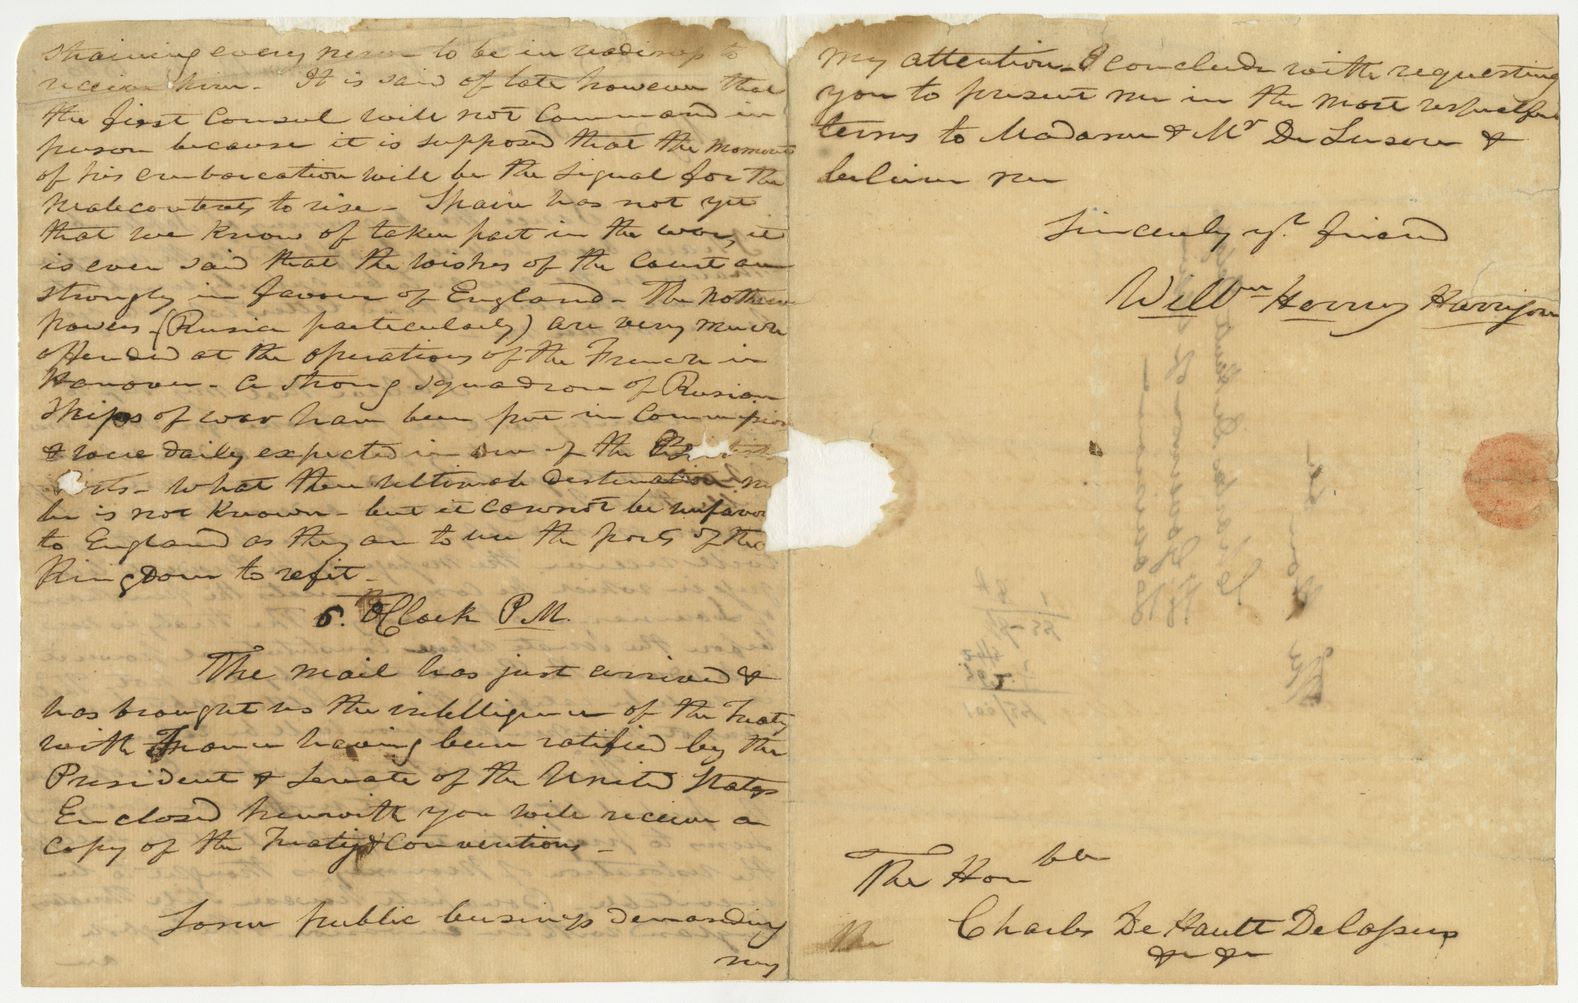 straining every nerve to be in readiness to
receive him - It is said of late however that
the first Consul will not Command in
person because it is supposed that the moment
of his embarcation will be the signal for the
malecontents to rise - Spain has not yet
that we know of taken part in the war, it
is even said that the wishes of the Court are
strongly in favour of England - The Northern
powers - (Rusia particularly) are very much
offended at the operations of the French in
Hanover - a strong squadron of Rusian
Ships of war have been put in Commission
& were daily expected in one of the British
ports - what their ultimate destination
be is not known - but it cannot be unfavo
to England as they are to use the ports of the
Kingdom to refit -
5. OClock P.M.
The mail has just arrived &
has brought us the intelligence of the Treaty
with France having been ratified by the
President & Senate of the United States
Enclosed herewith you will receive a
copy of the Treaty & Conventions -
Some public business demanding
my
my attention - I conclude with requesting
you to present me in the most respectful
terms to Madame & Mr De Lusere &
believe me
Sincerely yr. friend
Willm Henry Harrison
The Honble
Charles De Hault Delassus
&c &c